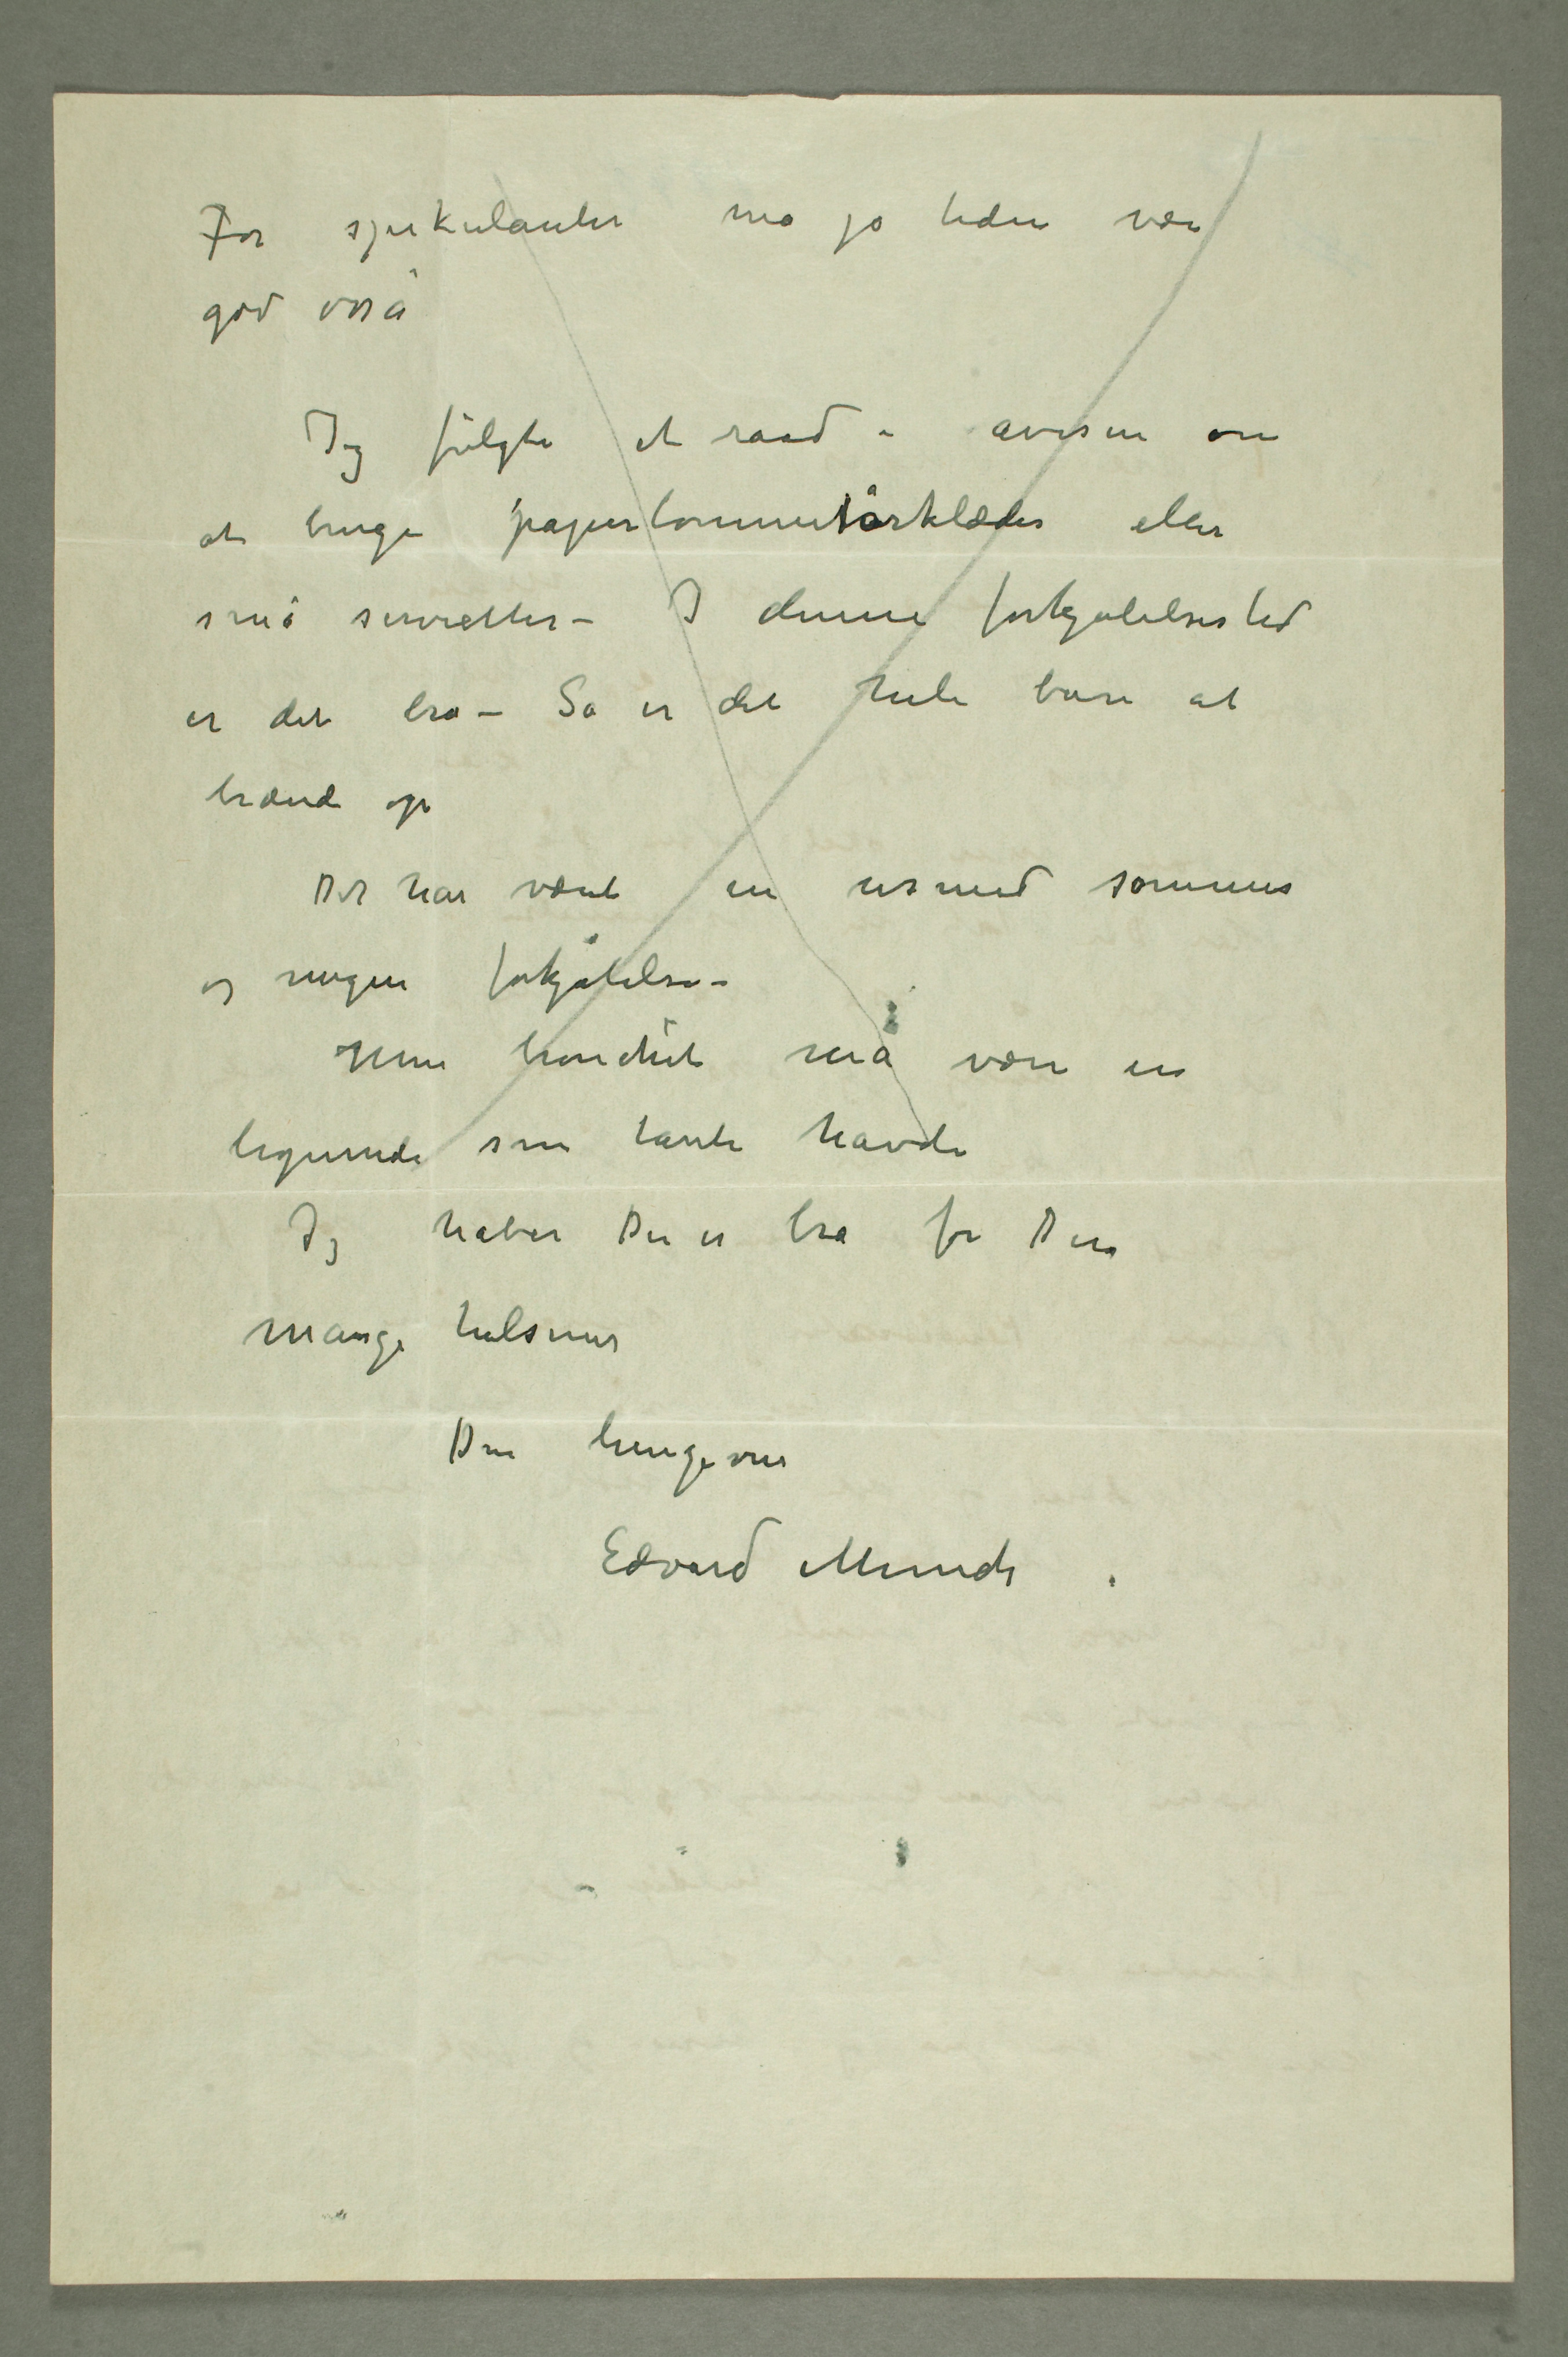 For spekulanter må jo tiden være
god også
Jeg fulgte et raad i avisen om
at bruge papirlommetørklæder eller
små servietter – I denne forkjølelsestid
er det bra – Så er det hele bare at
brænde op
Det har været en usund sommer
og megen forkjølelse –
Min bronchit må være en
lignende som tante havde
Jeg håber Det er bra for Dere
mange hilsener
Din hengivne
Edvard Munch